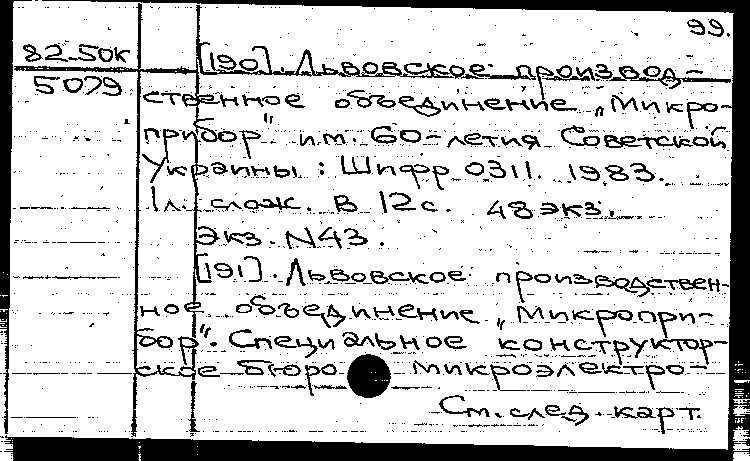 99.
82-50к [190]. Львовское производ-
5079 ственное объединение „Микро-
прибор" им. 60-летия Советской
Украины : Шифр 0311. 1983.
1л. слож. в 12с. 48экз.
Экз. N43.
[191]. Львовское производствен-
ное объединение „Микропри-
бор". Специальное конструктор-
ское бюро микроэлектро-
См. след. карт.